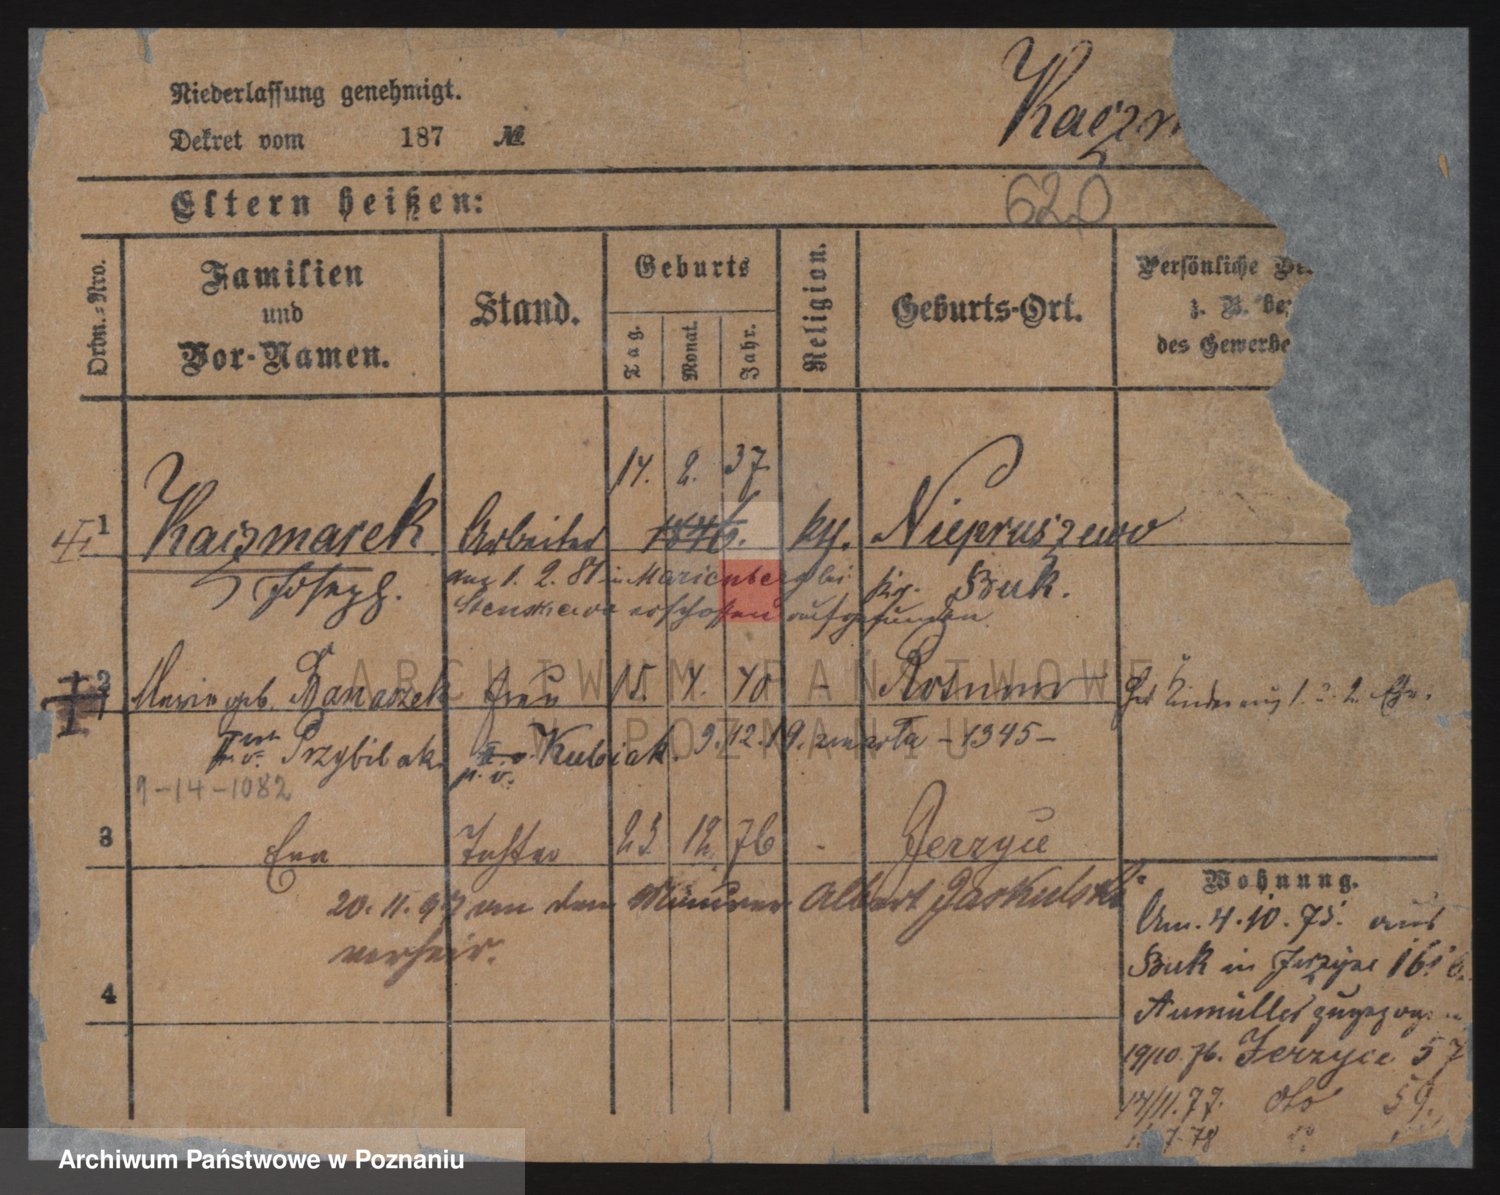 Niederlassung genehmigt.
Dekret vom 187 №
Kaczm
620
Eltern heißen:
Ordn.-Nro.
Familien
und
Vor-Namen.
Stand.
Geburts
Tag.
Monat.
Jahr.
Religion.
Geburts-Ort.
Persönliche
z. B.
des Gewerbe
14. 2. 37
1 Kaczmarek Arbeiter 1846. kth. Niepruszewo
Joseph. am 1. 2. 81 in Marienberg bei Kr. Buk.
Stenschewo erschossen aufgefunden.
2 Marie geb. Banaszek Frau 15. 4. 40 -
1. u. 2. Ehe.
Przybilak. Kubiak. 9.12.19. zmarła -1345-
9-14-1082
3 Eva Tochter 23 12. 76 - Jerzyce
20. 11. 97 an den Maurer Albert Jaskulski
verheir.
4
Wohnung.
Am. 4.10.75. aus
Buk in Jerzyce 16.
Aumüller
19/10.76. Jerzyce 57
14/11.77. dto 59.
7.78
ARCHIWUM PAŃSTWOWE
W POZNANIU
Archiwum Państwowe w Poznaniu